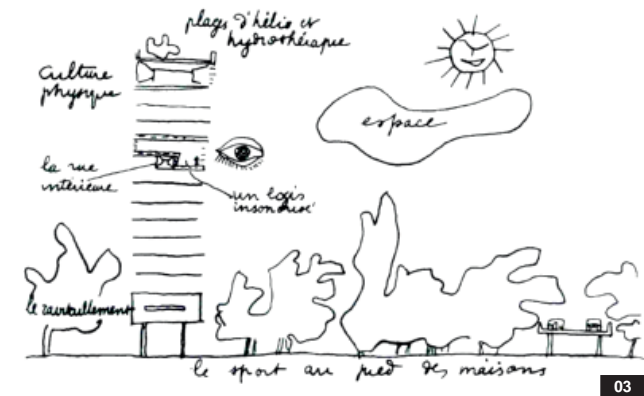 plages d'hélio et
hydrothérapie
Culture
physique
espace
la rue
intérieure
un logis
insonorisé
le ravitaillement
le sport au pied des maisons
03